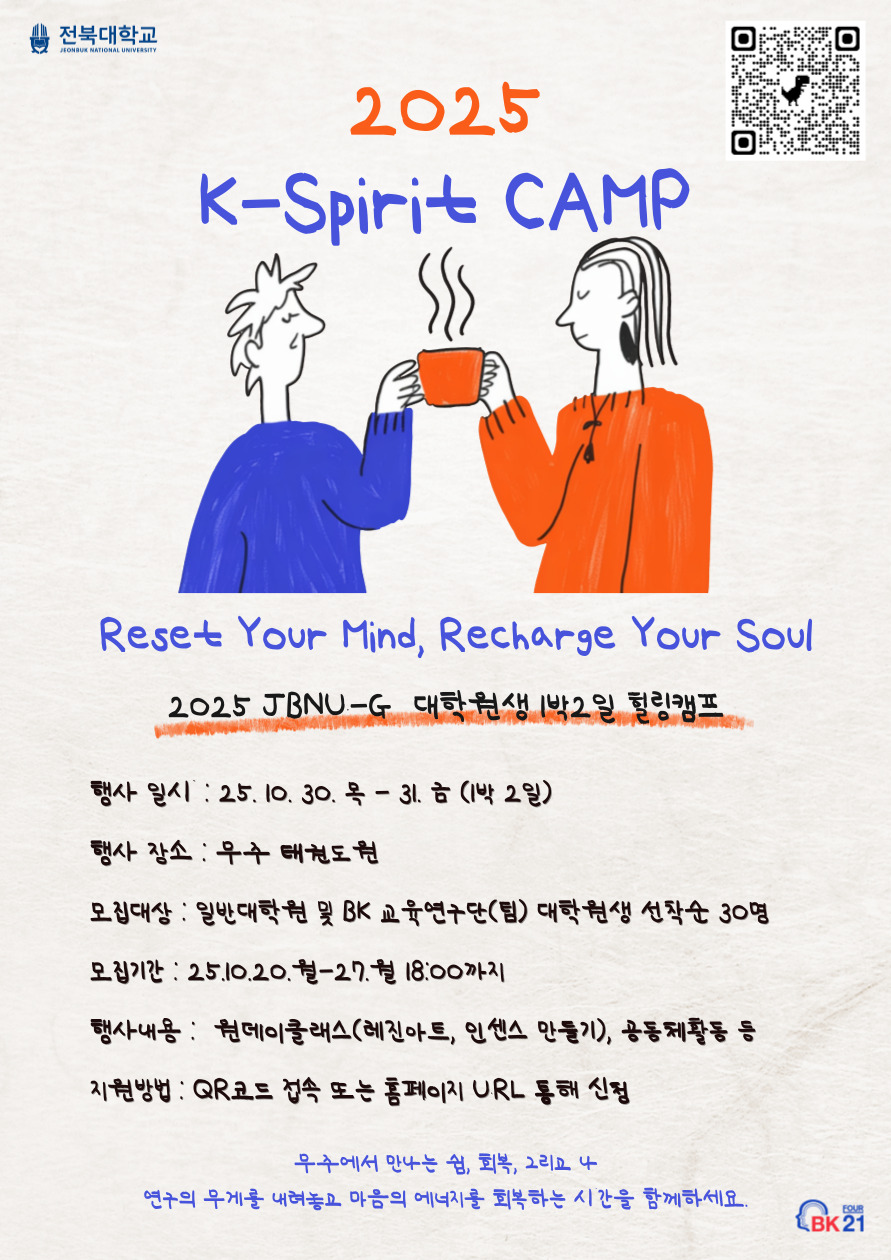 전북대학교
JEONBUK NATIONAL UNIVERSITY
2025
K-Spirit CAMP
Reset Your Mind, Recharge Your Soul
2025 JBNU-G 대학원생 1박2일 힐링캠프
행사 일시 : 25. 10. 30. 목 - 31. 금 (1박 2일)
행사 장소 : 무주 태권도원
모집대상 : 일반대학원 및 BK 교육연구단(팀) 대학원생 선착순 30명
모집기간 : 25.10.20.월-27.월 18:00까지
행사내용 : 원데이클래스(레진아트, 인센스 만들기), 공동체활동 등
지원방법 : QR코드 접속 또는 홈페이지 URL 통해 신청
무주에서 만나는 쉼, 회복, 그리고 나
연구의 무게를 내려놓고 마음의 에너지를 회복하는 시간을 함께하세요.
FOUR
BK 21